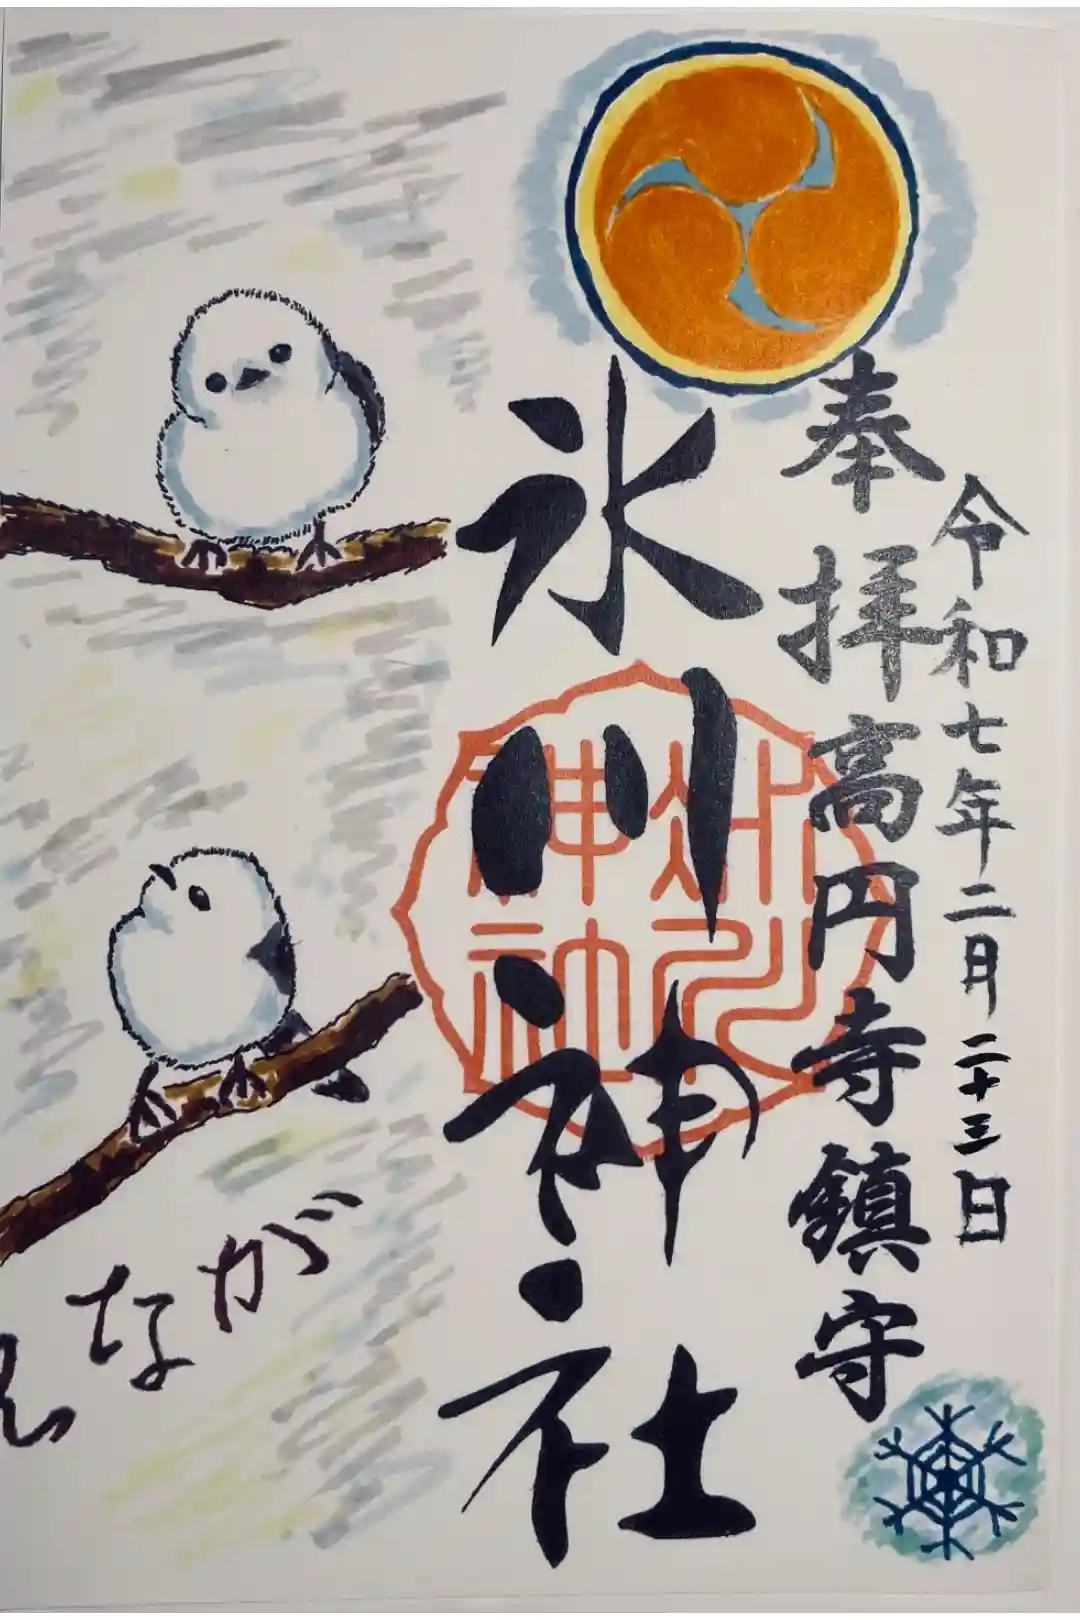 令和七年二月二十三日
奉拝高円寺鎮守
氷川神社
がなえ